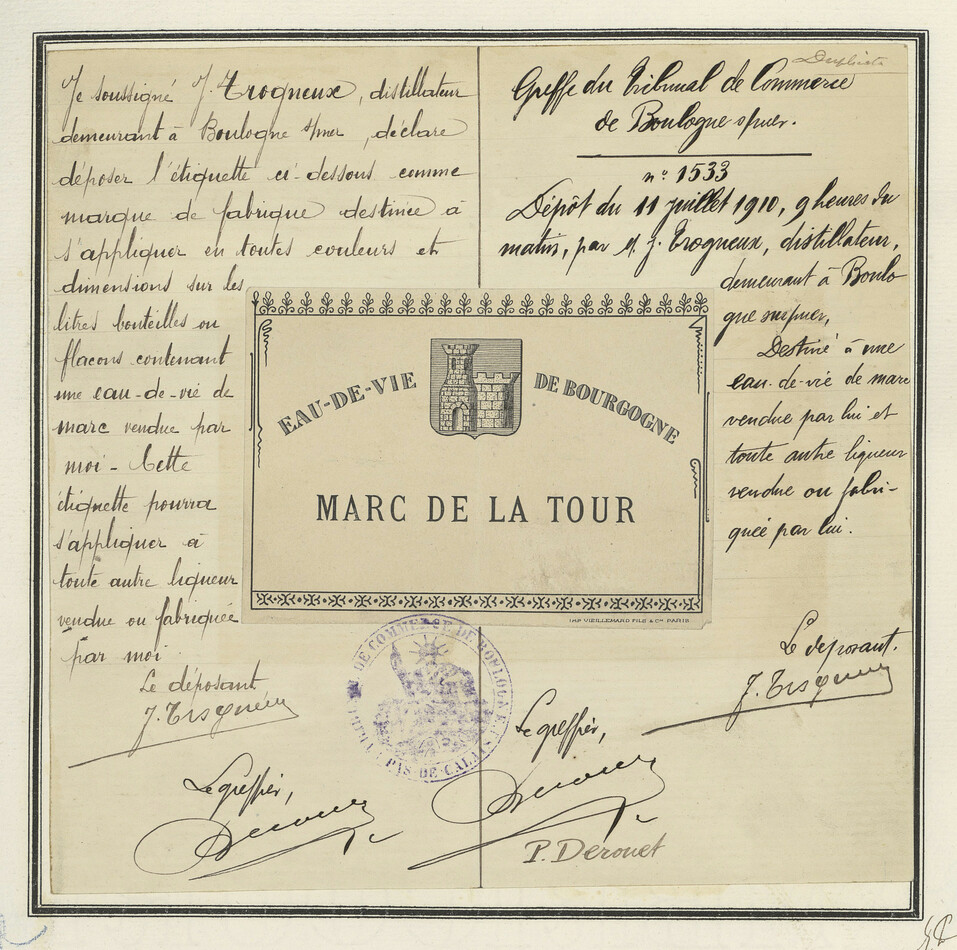 Je soussigné J. Trogneux, distillateur
demeurant à Boulogne s/mer, déclare
déposer l'étiquette ci-dessous comme
marque de fabrique destinée à
s'appliquer en toutes couleurs et
dimensions sur les
litres bouteilles ou
flacons contenant
une eau-de-vie de
marc vendue par
moi - Cette
étiquette pourra
s'appliquer à
toute autre liqueur
vendue ou fabriquée
par moi
Le déposant
J. Trogneux
Le greffier,
Duplicata
Greffe du Tribunal de Commerce
de Boulogne s/mer.
n° 1533
Dépôt du 11 juillet 1910, 9 heures du
matin, par M. J. Trogneux, distillateur,
demeurant à Boulo-
gne sur mer,
Destiné à une
eau-de-vie de marc
vendue par lui et
toute autre liqueur
vendue ou fabri-
quée par lui.
Le déposant.
J. Trogneux
Le greffier,
P. Derouet
EAU-DE-VIE DE BOURGOGNE
MARC DE LA TOUR
IMP. VIEILLEMARD FILS & Cie PARIS
DE COMMERCE DE BOULOGNE
PAS-DE-CALAIS